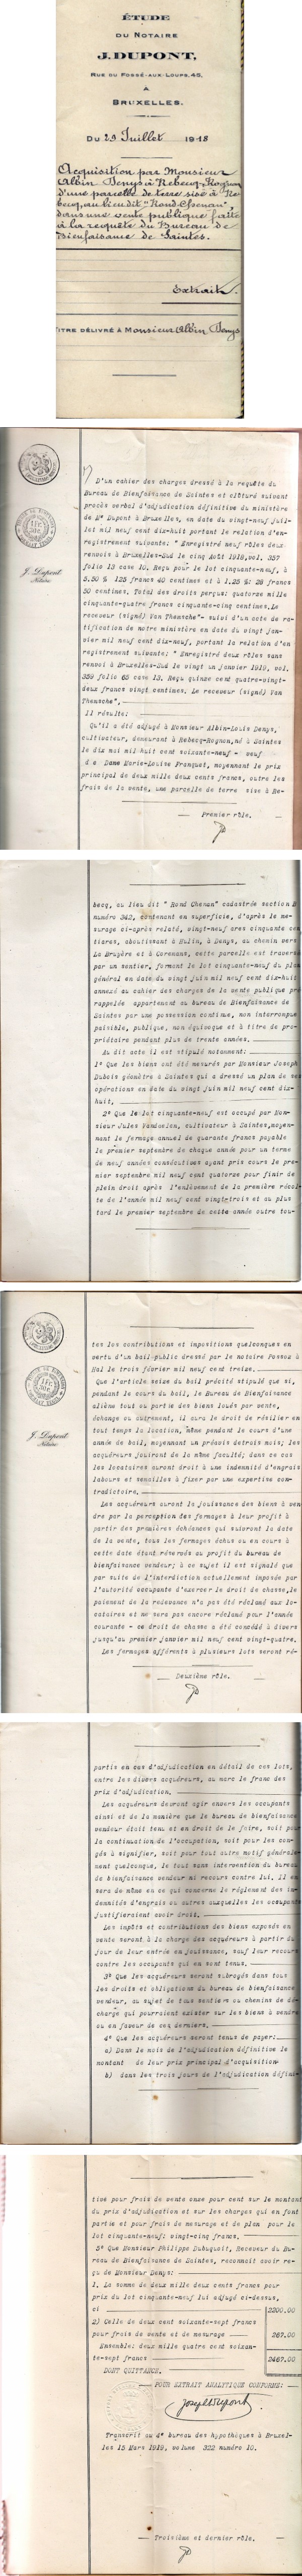 ÉTUDE
DU NOTAIRE
J. DUPONT,
RUE DU FOSSÉ-AUX-LOUPS, 45,
A
BRUXELLES.
DU 29 Juillet 1918
Acquisition par Monsieur
Albin Denys à Rebecq-Rognon
d'une parcelle de terre sise à Re-
becq, au lieu dit "Rond Chenan",
dans une vente publique faite
à la requête du Bureau de
Bienfaisance de Saintes.
Extrait.
TITRE DÉLIVRÉ A Monsieur Albin Denys
J. Dupont
Notaire
D'un cahier des charges dressé à la requête du
Bureau de Bienfaisance de Saintes et clôturé suivant
procès verbal d'adjudication définitive du ministère
de Me Dupont à Bruxelles, en date du vingt-neuf juil-
let mil neuf cent dix-huit portant la relation d'en-
registrement suivante: " Enregistré neuf rôles deux
renvois à Bruxelles-Sud le cinq Août 1918, vol. 357
folio 13 case 10. Reçu pour le lot cinquante-neuf, à
5.50 % 125 francs 40 centimes et à 1.25 %: 28 francs
50 centimes. Total des droits perçus: quatorze mille
cinquante-quatre francs cinquante-cinq centimes. Le
receveur (signé) Van Thensche"- suivi d'un acte de ra-
tification de notre ministère en date du vingt jan-
vier mil neuf cent dix-neuf, portant la relation d'en-
registrement suivant: " Enregistré deux rôles sans
renvoi à Bruxelles-Sud le vingt un janvier 1919, vol.
359 folio 65 case 13. Reçu quinze cent quatre-vingt-
deux francs vingt centimes. Le receveur (signé) Van
Thensche",
Il résulte:
Qu'il a été adjugé à Monsieur Albin-Louis Denys,
cultivateur, demeurant à Rebecq-Rognon, né à Saintes
le dix mai mil huit cent soixante-neuf - veuf
de Dame Marie-Louise Franquet, moyennant le prix
principal de deux mille deux cents francs, outre les
frais de la vente, une parcelle de terre sise à Re-
Premier rôle.
becq, au lieu dit " Rond Chenan" cadastrée section B
numéro 342, contenant en superficie, d'après le me-
surage ci-après relaté, vingt-neuf ares cinquante cen
tiares, aboutissant à Bulin, à Denys, au chemin vers
La Bruyère et à Corenans, cette parcelle est traversée
par un sentier, formant le lot cinquante-neuf du plan
général en date du vingt juin mil neuf cent dix-huit
annexé au cahier des charges de la vente publique pré
rappelée appartenant au bureau de Bienfaisance de
Saintes par une possession continue, non interrompue
paisible, publique, non équivoque et à titre de pro-
priétaire pendant plus de trente années.
Au dit acte il est stipulé notamment:
1° Que les biens ont été mesurés par Monsieur Joseph
Dubois géomètre à Saintes qui a dressé un plan de ses
opérations en date du vingt juin mil neuf cent dix-
huit,
2° Que le lot cinquante-neuf est occupé par Mon-
sieur Jules Vandaelen, cultivateur à Saintes, moyen-
nant le fermage annuel de quarante francs payable
le premier septembre de chaque année pour un terme
de neuf années consécutives ayant pris cours le pre-
mier septembre mil neuf cent quatorze pour finir de
plein droit après l'enlèvement de la première récol-
te de l'année mil neuf cent vingt-trois et au plus
tard le premier septembre de cette année outre tou-
J. Dupont
Notaire
tes les contributions et impositions quelconques en
vertu d'un bail public dressé par le notaire Possoz à
Hal le trois février mil neuf cent treize.
Que l'article seize du bail précité stipule que si,
pendant le cours du bail, le Bureau de Bienfaisance
aliène tout ou partie des biens loués par vente,
échange ou autrement, il aura le droit de résilier en
tout temps la location, même pendant le cours d'une
année de bail, moyennant un préavis de trois mois; les
acquéreurs jouiront de la même faculté; dans ce cas
les locataires auront droit à une indemnité d'engrais
labours et semailles à fixer par une expertise con-
tradictoire.
Les acquéreurs auront la jouissance des biens à ven
dre par la perception des fermages à leur profit à
partir des premières échéances qui suivront la date
de la vente, tous les fermages échus ou en cours à
cette date étant réservés au profit du bureau de
bienfaisance vendeur; à ce sujet il est signalé que
par suite de l'interdiction actuellement imposée par
l'autorité occupante d'exercer le droit de chasse, le
paiement de la redevance n'a pas été réclamé aux lo-
cataires et ne sera pas encore réclamé pour l'année
courante - ce droit de chasse a été concédé à divers
jusqu'au premier janvier mil neuf cent vingt-quatre.
Les fermages afférents à plusieurs lots seront ré-
Deuxième rôle.
partis en cas d'adjudication en détail de ces lots,
entre les divers acquéreurs, au marc le franc des
prix d'adjudication.
Les acquéreurs devront agir envers les occupants
ainsi et de la manière que le bureau de bienfaisance
vendeur était tenu et en droit de le faire, soit pour
la continuation de l'occupation, soit pour les con-
gés à signifier, soit pour tout autre motif générale-
ment quelconque, le tout sans intervention du bureau
de bienfaisance vendeur ni recours contre lui. Il en
sera de même en ce qui concerne le règlement des in-
demnités d'engrais ou autres auxquelles les occupants
justifieraient avoir droit.
Les impôts et contributions des biens exposés en
vente seront à la charge des acquéreurs à partir du
jour de leur entrée en jouissance, sauf leur recours
contre les occupants qui en sont tenus.
3° Que les acquéreurs seront subrogés dans tous
les droits et obligations du bureau de bienfaisance
vendeur, au sujet de tous sentiers ou chemins de dé-
charge qui pourraient exister sur les biens à vendre
ou en faveur de ces derniers.
4° Que les acquéreurs seront tenus de payer:
a) Dans le mois de l'adjudication définitive le
montant de leur prix principal d'acquisition
b) dans les trois jours de l'adjudication défini-
tive pour frais de vente onze pour cent sur le montant
du prix d'adjudication et sur les charges qui en font
partie et pour frais de mesurage et de plan pour le
lot cinquante-neuf: vingt-cinq francs.
5° Que Monsieur Philippe Dubuquoit, Receveur du Bu-
reau de Bienfaisance de Saintes, reconnait avoir re-
çu de Monsieur Denys:
1. La somme de deux mille deux cents francs pour
prix du lot cinquante-neuf lui adjugé ci-dessus,
ci 2200.00
2) Celle de deux cent soixante-sept francs
pour frais de vente et de mesurage 267.00
Ensemble: deux mille quatre cent soixan-
te-sept francs 2467.00
DONT QUITTANCE.
POUR EXTRAIT ANALYTIQUE CONFORME:
Joseph Dupont
Transcrit au 4e bureau des hypothèques à Bruxel-
les 15 Mars 1919, volume 322 numéro 10.
Troisième et dernier rôle.